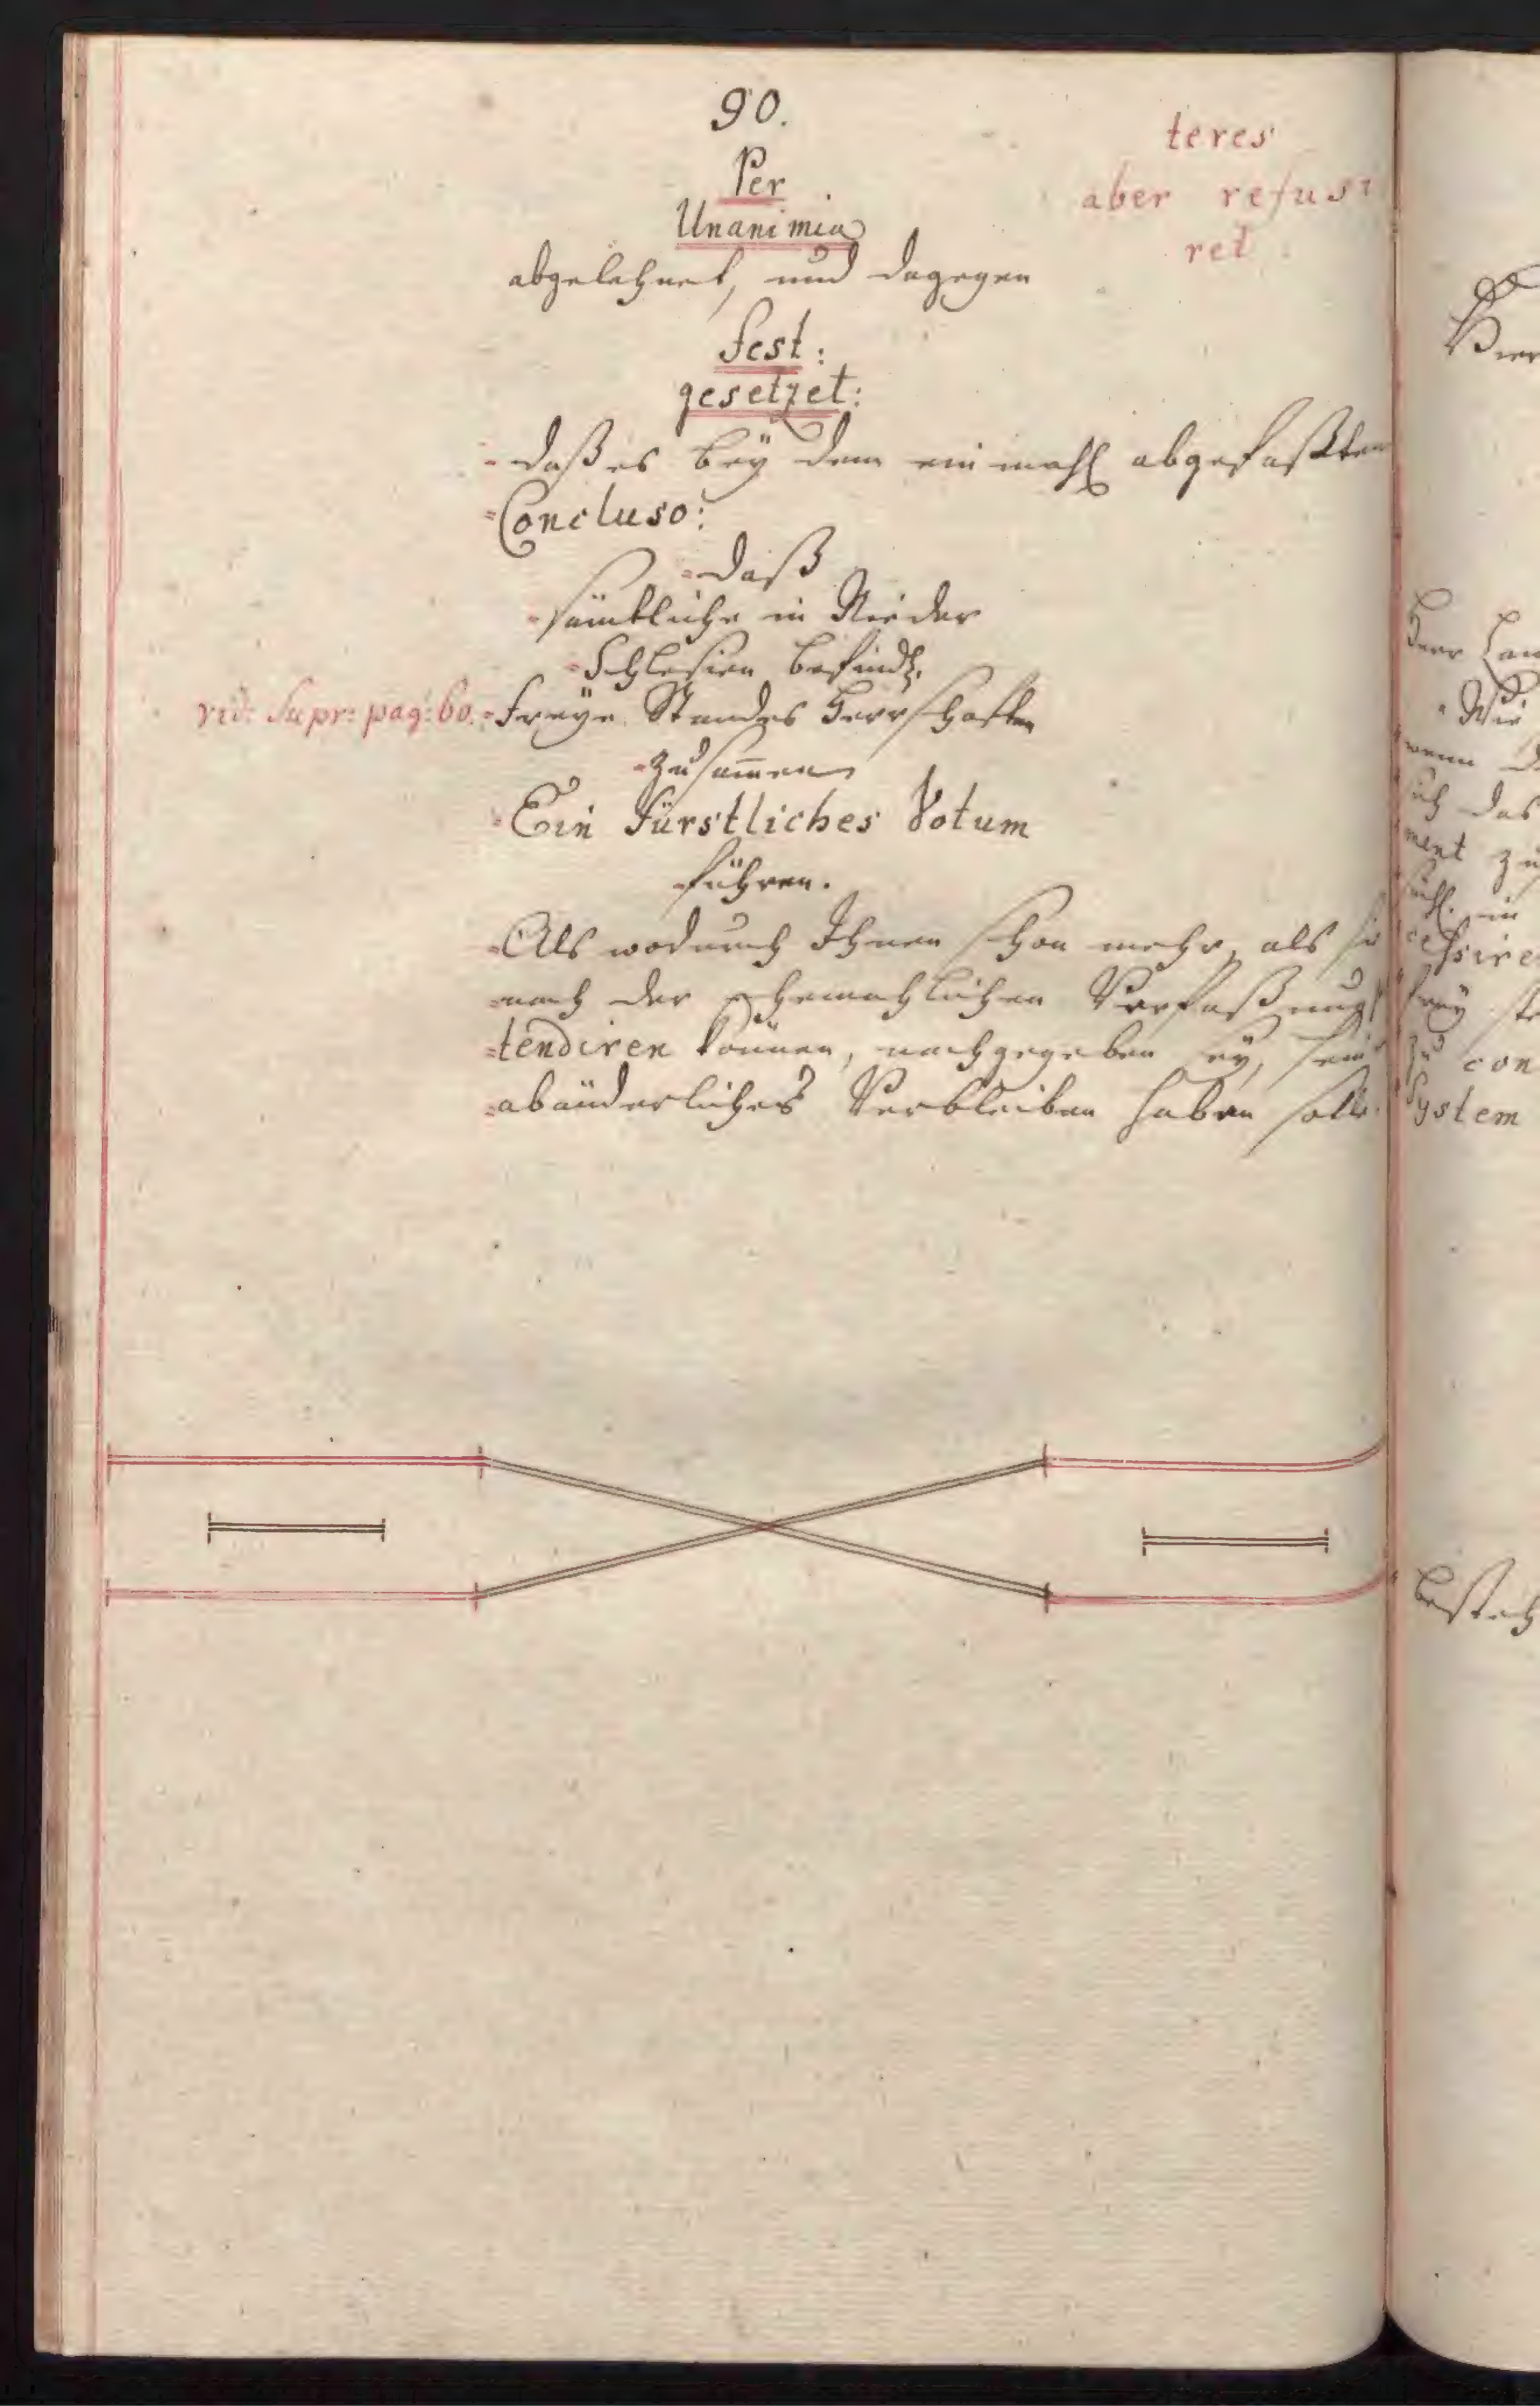 90.
Per
Unanimia
abgelehnet, und dagegen
teres
aber refusi
ret
fest:
gesetzet:
daß es bey dem ein mahl abgefaßten
Concluso:
daß
sämbtliche in Nieder
Schlesien befindl.
vid: Supr: pag: 60.
Freye Standes Herrschafften
zusam̅en
Ein Fürstliches Votum
führen.
Als wodurch Ihnen schon mehr, als sie
nach der ehemahlichen Verfaßung
tendiren können, nachgegeben sey, sein
abänderliches Verbleiben haben solle.
Herr
Wie
wenn
sich das
ment zu
ein
frey
zu con
System